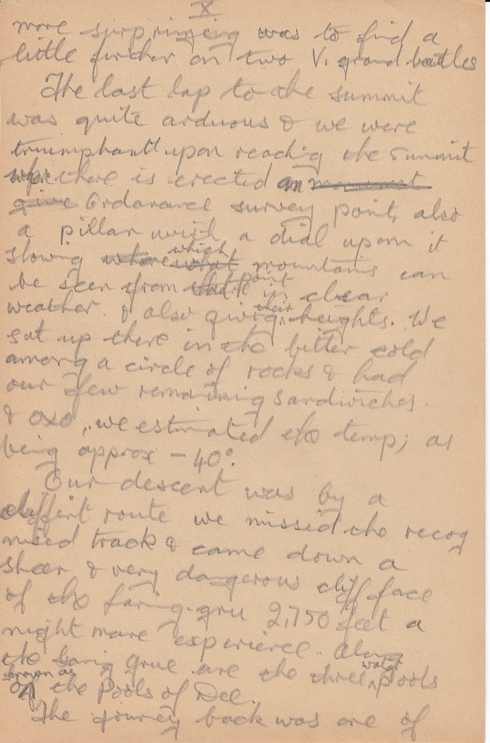 X
more surprising was to find a
little further on two V. grand battles
The last lap to the summit
was quite arduous & we were
triumphant upon reaching the summit
where there is erected an monument
give Ordanance survey point, also
a pillar with a dial upon it
showing where what which mountains can
be seen from that point in clear
weather. & also giving their heights. We
sat up there in the bitter cold
among a circle of rocks & had
our few remaining sandwiches
& oxo, we estimated the temp; as
being approx - 40°.
Our descent was by a
diffent route we missed the recog
nised track & came down a
sheer & very dangerous cliff face
of the Laring-gru 2,750 feet a
night mare experience. Along
the Laring grue are the three water pools
known as
the Pools of Dee.
The journey back was one of